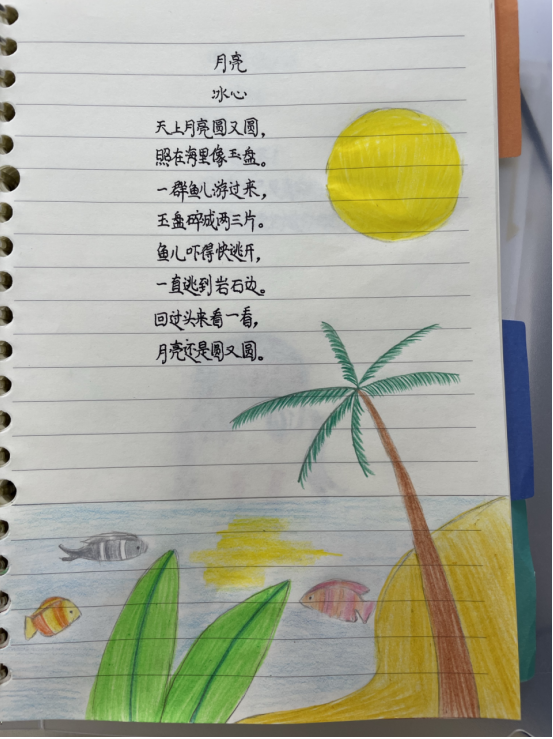 月亮
冰心
天上月亮圆又圆，
照在海里像玉盘。
一群鱼儿游过来，
玉盘碎成两三片。
鱼儿吓得快逃开，
一直逃到岩石边。
回过头来看一看，
月亮还是圆又圆。